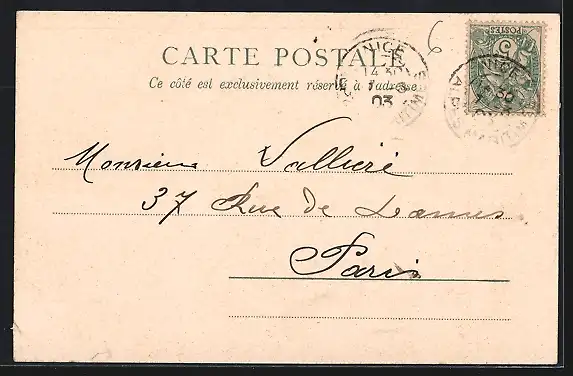 CARTE POSTALE
Ce côté est exclusivement réservé à l'adresse
NICE
14 30
03
POSTES
5
NICE
30
6
Monsieur Vallieré
37 Rue de
Paris